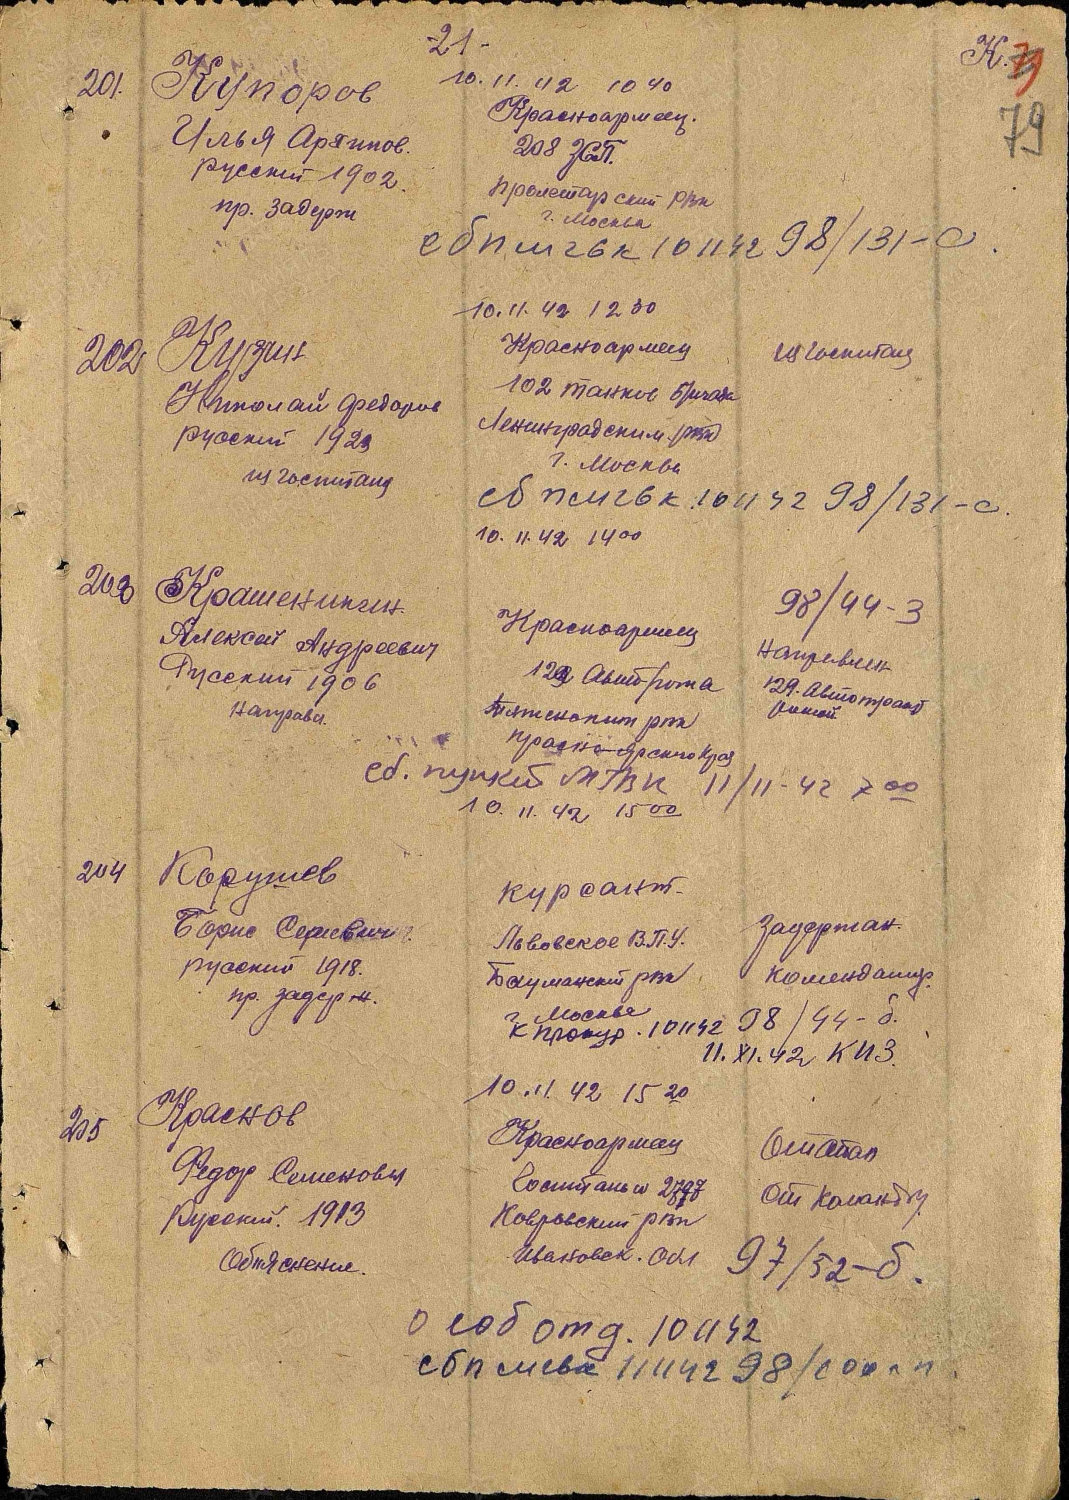 -21-
К. 79
79
201. Купоров
Илья Архипов.
русский 1902.
пр. задерж
10.11.42 10 40
Красноармеец.
208 ЗСП.
Пролетарский рвк
г. Москва
сбп мгвк 10 11 42 98/131-с.
10.11.42 12 30
202 Кузин
Николай Федоров
русский 1923
из госпиталя
Красноармеец
102 танков бригада
Ленинградским. рвк
г. Москва
из госпиталя
сбп мгвк 10 11 42 98/131-с.
10.11.42 14 00
203 Крашенинин
Алексей Андреевич
Русский 1906
направл.
Красноармеец
129 Авторота
рвк
Красноярского края
98/44-3
Направлен
129. Автротой
сб. пункт МГВК 11/11-42 7 00
10.11.42 15 00
204 Карушев
Борис Сергеевич
русский 1918.
пр. задерж.
курсант
Львовское В.П.У.
Бауманский рвк
г. Москва
К прокур. 10 11 42 98/44-б.
11.XI.42 КПЗ.
Задержан.
комендатур.
10.11.42 15 20
205 Краснов
Федор Семеновы
Русский. 1913
Объяснение.
Красноармеец
Госпиталь
Ковровский рвк
Ивановск. обл
Отстал
От команды
97/52-б.
особ отд. 10 11 42
сбп мгвк 11 11 42 98/